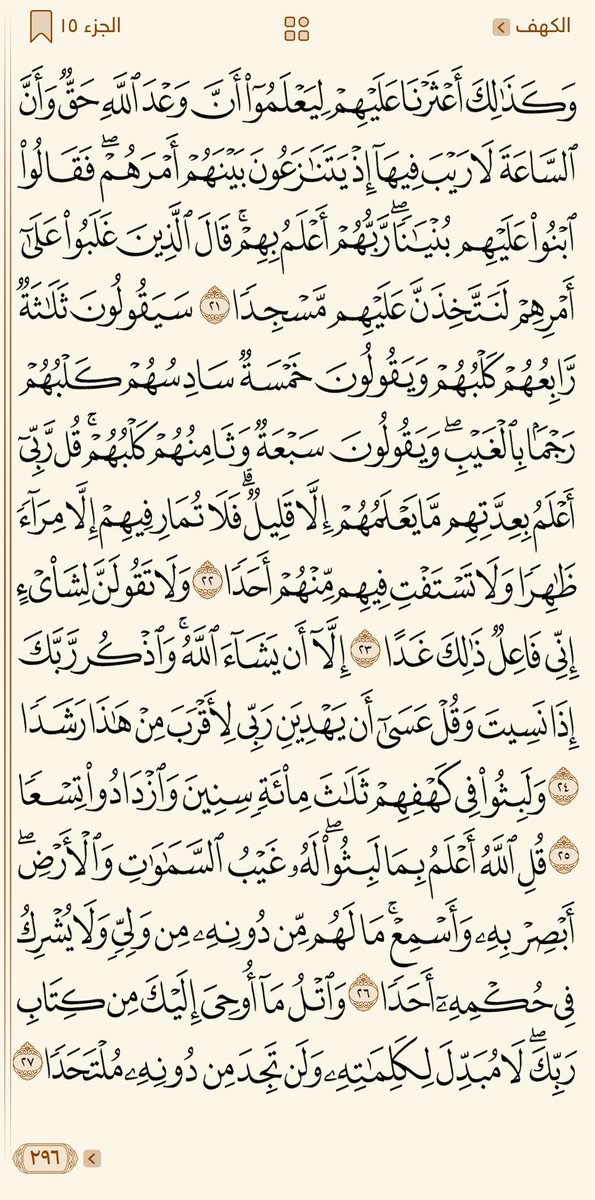 الكهف
الجزء ١٥
وَكَذَٰلِكَ أَعْثَرْنَا عَلَيْهِمْ لِيَعْلَمُوٓا۟ أَنَّ وَعْدَ ٱللَّهِ حَقٌّ وَأَنَّ
ٱلسَّاعَةَ لَا رَيْبَ فِيهَآ إِذْ يَتَنَٰزَعُونَ بَيْنَهُمْ أَمْرَهُمْ ۖ فَقَالُوا۟
ٱبْنُوا۟ عَلَيْهِم بُنْيَٰنًا ۖ رَّبُّهُمْ أَعْلَمُ بِهِمْ ۚ قَالَ ٱلَّذِينَ غَلَبُوا۟ عَلَىٰٓ
أَمْرِهِمْ لَنَتَّخِذَنَّ عَلَيْهِم مَّسْجِدًا ٢١ سَيَقُولُونَ ثَلَٰثَةٌ
رَّابِعُهُمْ كَلْبُهُمْ وَيَقُولُونَ خَمْسَةٌ سَادِسُهُمْ كَلْبُهُمْ
رَجْمًۢا بِٱلْغَيْبِ ۖ وَيَقُولُونَ سَبْعَةٌ وَثَامِنُهُمْ كَلْبُهُمْ ۚ قُل رَّبِّىٓ
أَعْلَمُ بِعِدَّتِهِم مَّا يَعْلَمُهُمْ إِلَّا قَلِيلٌ ۗ فَلَا تُمَارِ فِيهِمْ إِلَّا مِرَآءً
ظَٰهِرًا وَلَا تَسْتَفْتِ فِيهِم مِّنْهُمْ أَحَدًا ٢٢ وَلَا تَقُولَنَّ لِشَا۟ىْءٍ
إِنِّى فَاعِلٌ ذَٰلِكَ غَدًا ٢٣ إِلَّآ أَن يَشَآءَ ٱللَّهُ ۚ وَٱذْكُر رَّبَّكَ
إِذَا نَسِيتَ وَقُلْ عَسَىٰٓ أَن يَهْدِيَنِ رَبِّى لِأَقْرَبَ مِنْ هَٰذَا رَشَدًا
٢٤ وَلَبِثُوا۟ فِى كَهْفِهِمْ ثَلَٰثَ مِا۟ئَةٍ سِنِينَ وَٱزْدَادُوا۟ تِسْعًا
٢٥ قُلِ ٱللَّهُ أَعْلَمُ بِمَا لَبِثُوا۟ ۖ لَهُۥ غَيْبُ ٱلسَّمَٰوَٰتِ وَٱلْأَرْضِ ۖ
أَبْصِرْ بِهِۦ وَأَسْمِعْ ۚ مَا لَهُم مِّن دُونِهِۦ مِن وَلِىٍّ وَلَا يُشْرِكُ
فِى حُكْمِهِۦٓ أَحَدًا ٢٦ وَٱتْلُ مَآ أُوحِىَ إِلَيْكَ مِن كِتَابِ
رَبِّكَ ۖ لَا مُبَدِّلَ لِكَلِمَٰتِهِۦ وَلَن تَجِدَ مِن دُونِهِۦ مُلْتَحَدًا ٢٧
٢٩٦